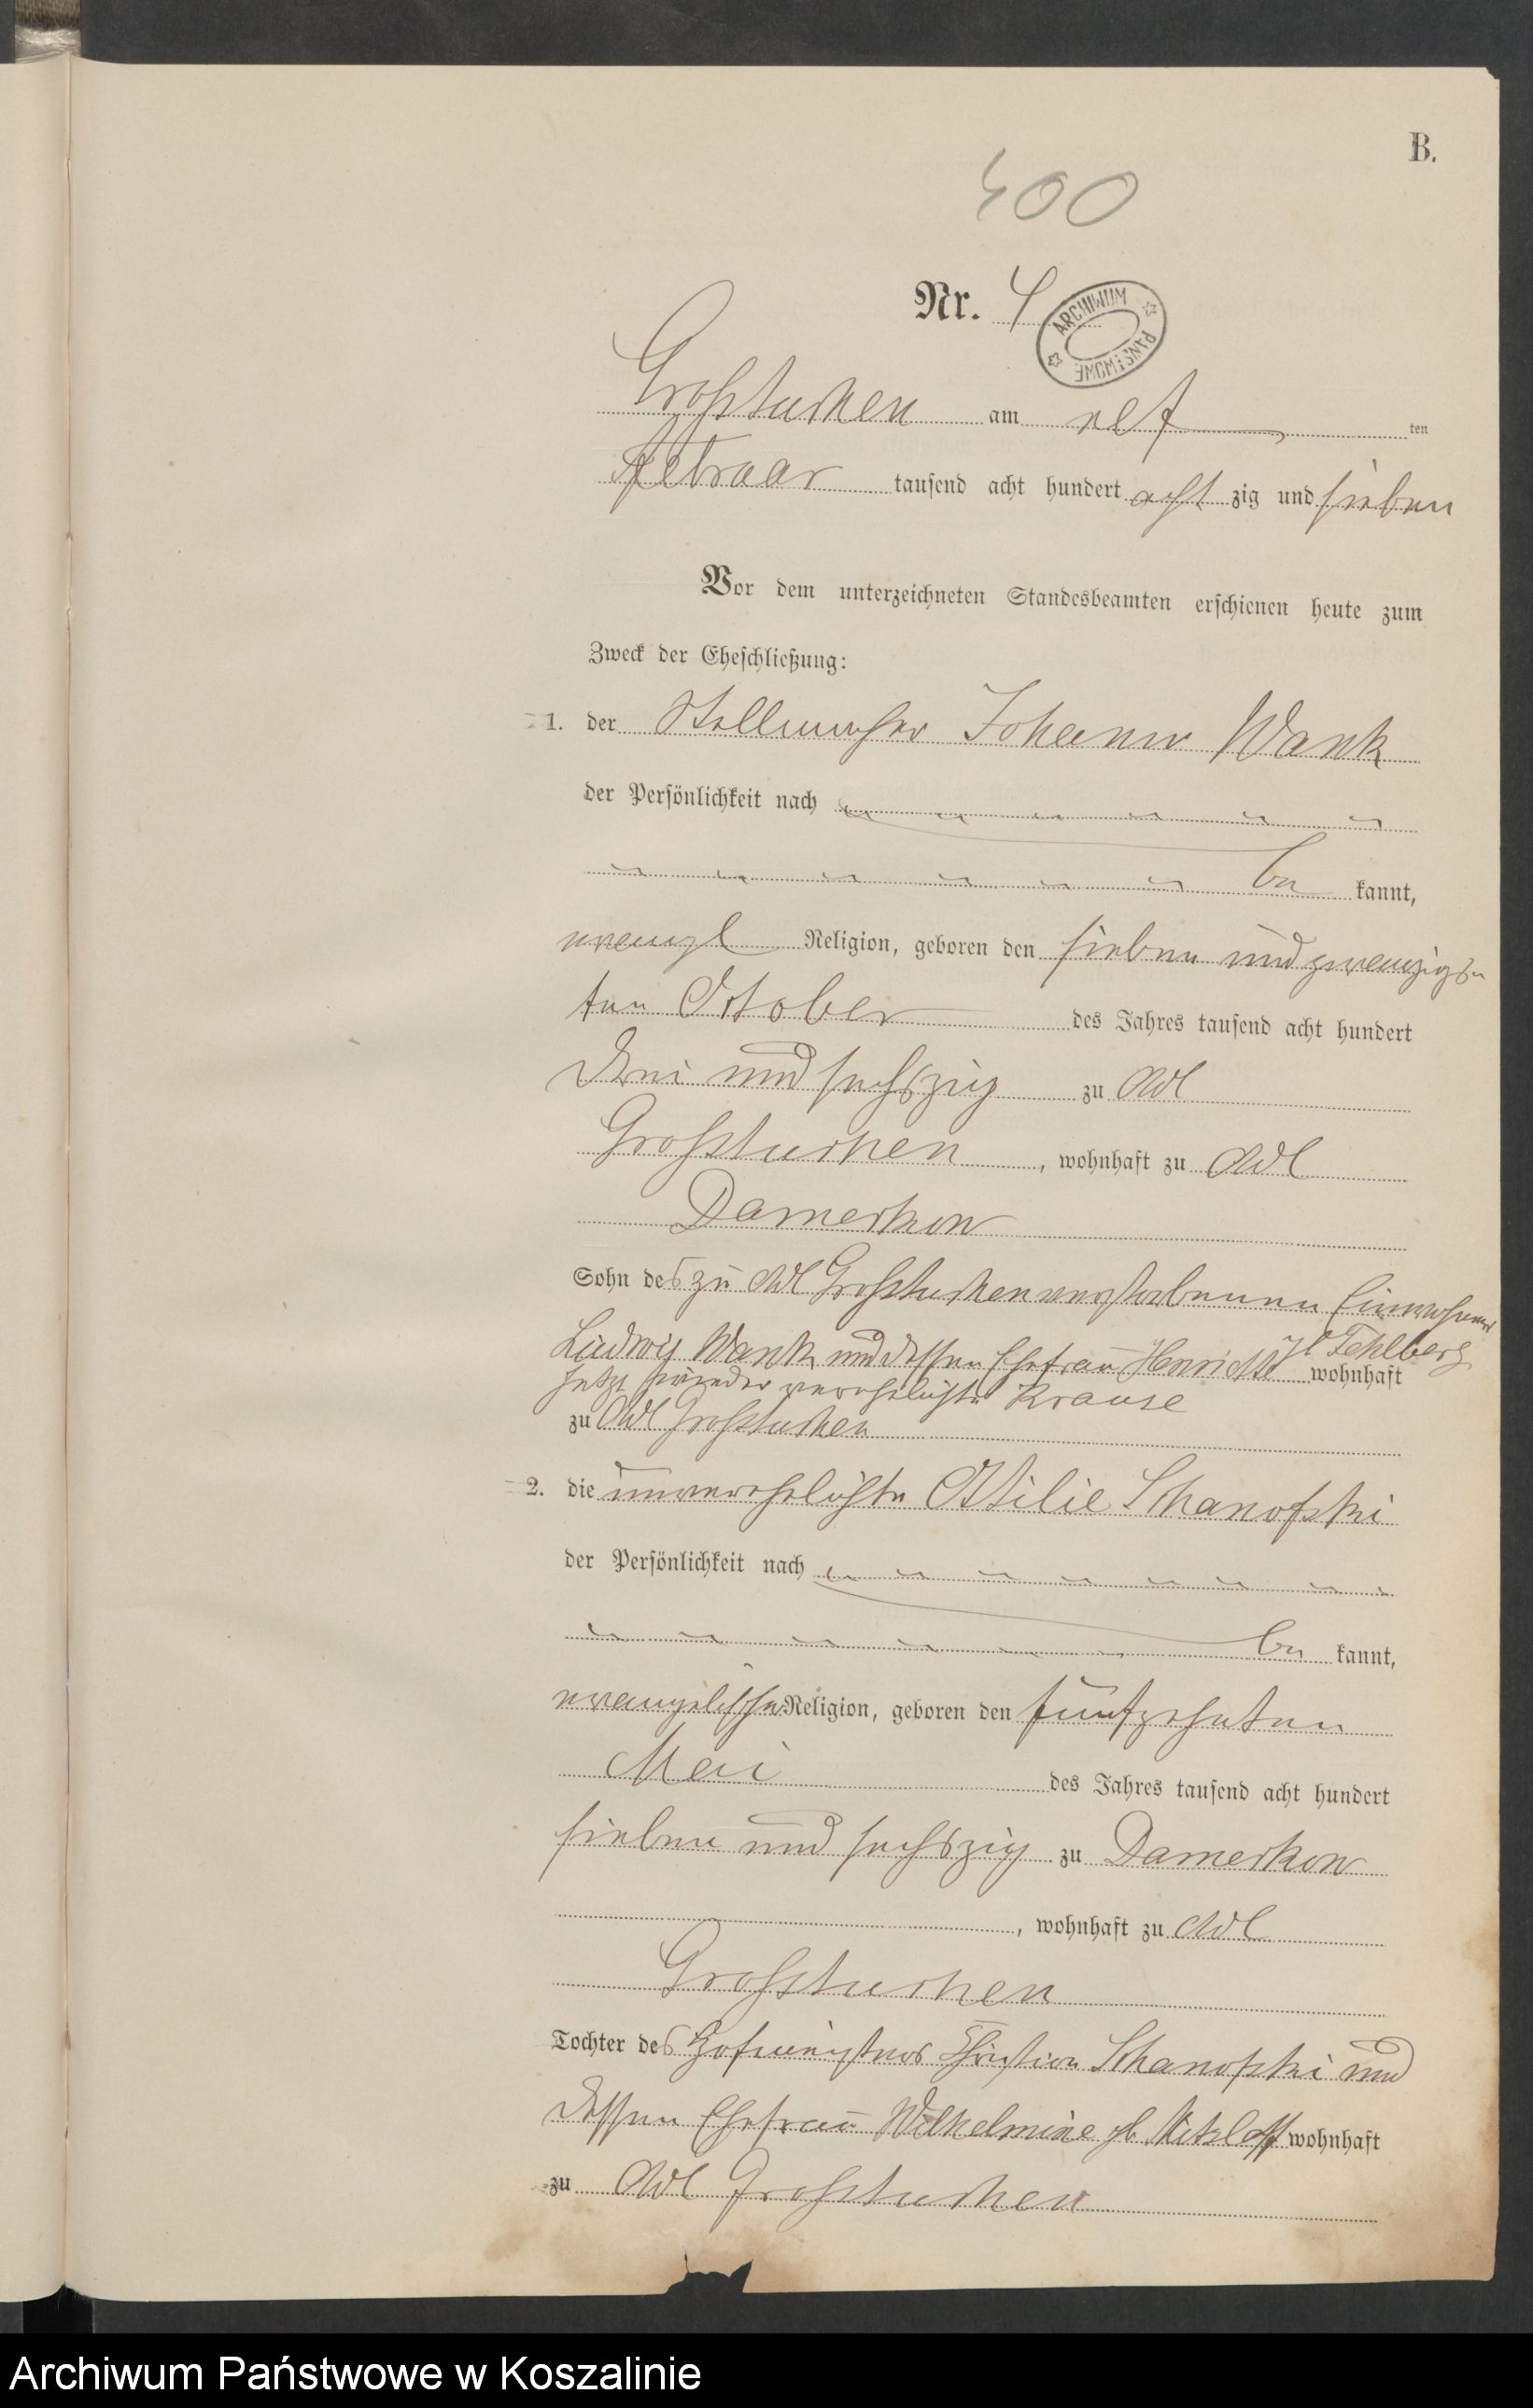 B.
400
Nr. 4
ARCHIWUM PAŃSTWOWE
Großtuchen am elf ten
Februar tausend acht hundert acht zig und sieben
Vor dem unterzeichneten Standesbeamten erschienen heute zum
Zweck der Eheschließung:
1. der Stellmacher Johann Wank
der Persönlichkeit nach
be kannt,
evangl Religion, geboren den sieben und zwanzigs
ten October des Jahres tausend acht hundert
drei und sechszig zu Adl
Großtuchen, wohnhaft zu Adl
Damerkow
Sohn des zu Adl Großtuchen verstorbenen Einwohners
Ludwig Wank und dessen Ehefrau Henriette gb Fehlberg wohnhaft
jetzt wieder verehelichte Krause
zu Adl Großtuchen
2. die unverehelichte Ottilie Schanofski
der Persönlichkeit nach
be kannt,
evangelischer Religion, geboren den fünfzehnten
Mai des Jahres tausend acht hundert
sieben und sechszig zu Damerkow
, wohnhaft zu Adl
Großtuchen
Tochter des Hofmeisters Christian Schanofski und
dessen Ehefrau Wilhelmine gb Kitzlaff wohnhaft
zu Adl Großtuchen
Archiwum Państwowe w Koszalinie